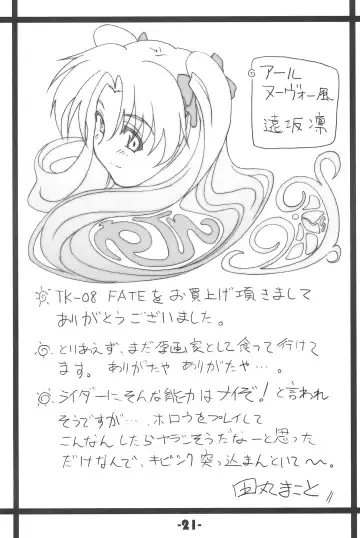 アール
ヌーヴォー風
遠坂凛
TK-08 FATEをお買上げ頂きまして
ありがとうございました。
とりあえず、まだ原画家として食って行けて
ます。ありがたやありがたや…。
ライダーにそんな能力はナイぞ!と言われ
そうですが…、ホロウをプレイして
こんなんしたらヤラこそうだなーと思った
だけなんで、キビシク突っ込まんといて〜。
田丸まこと
-21-